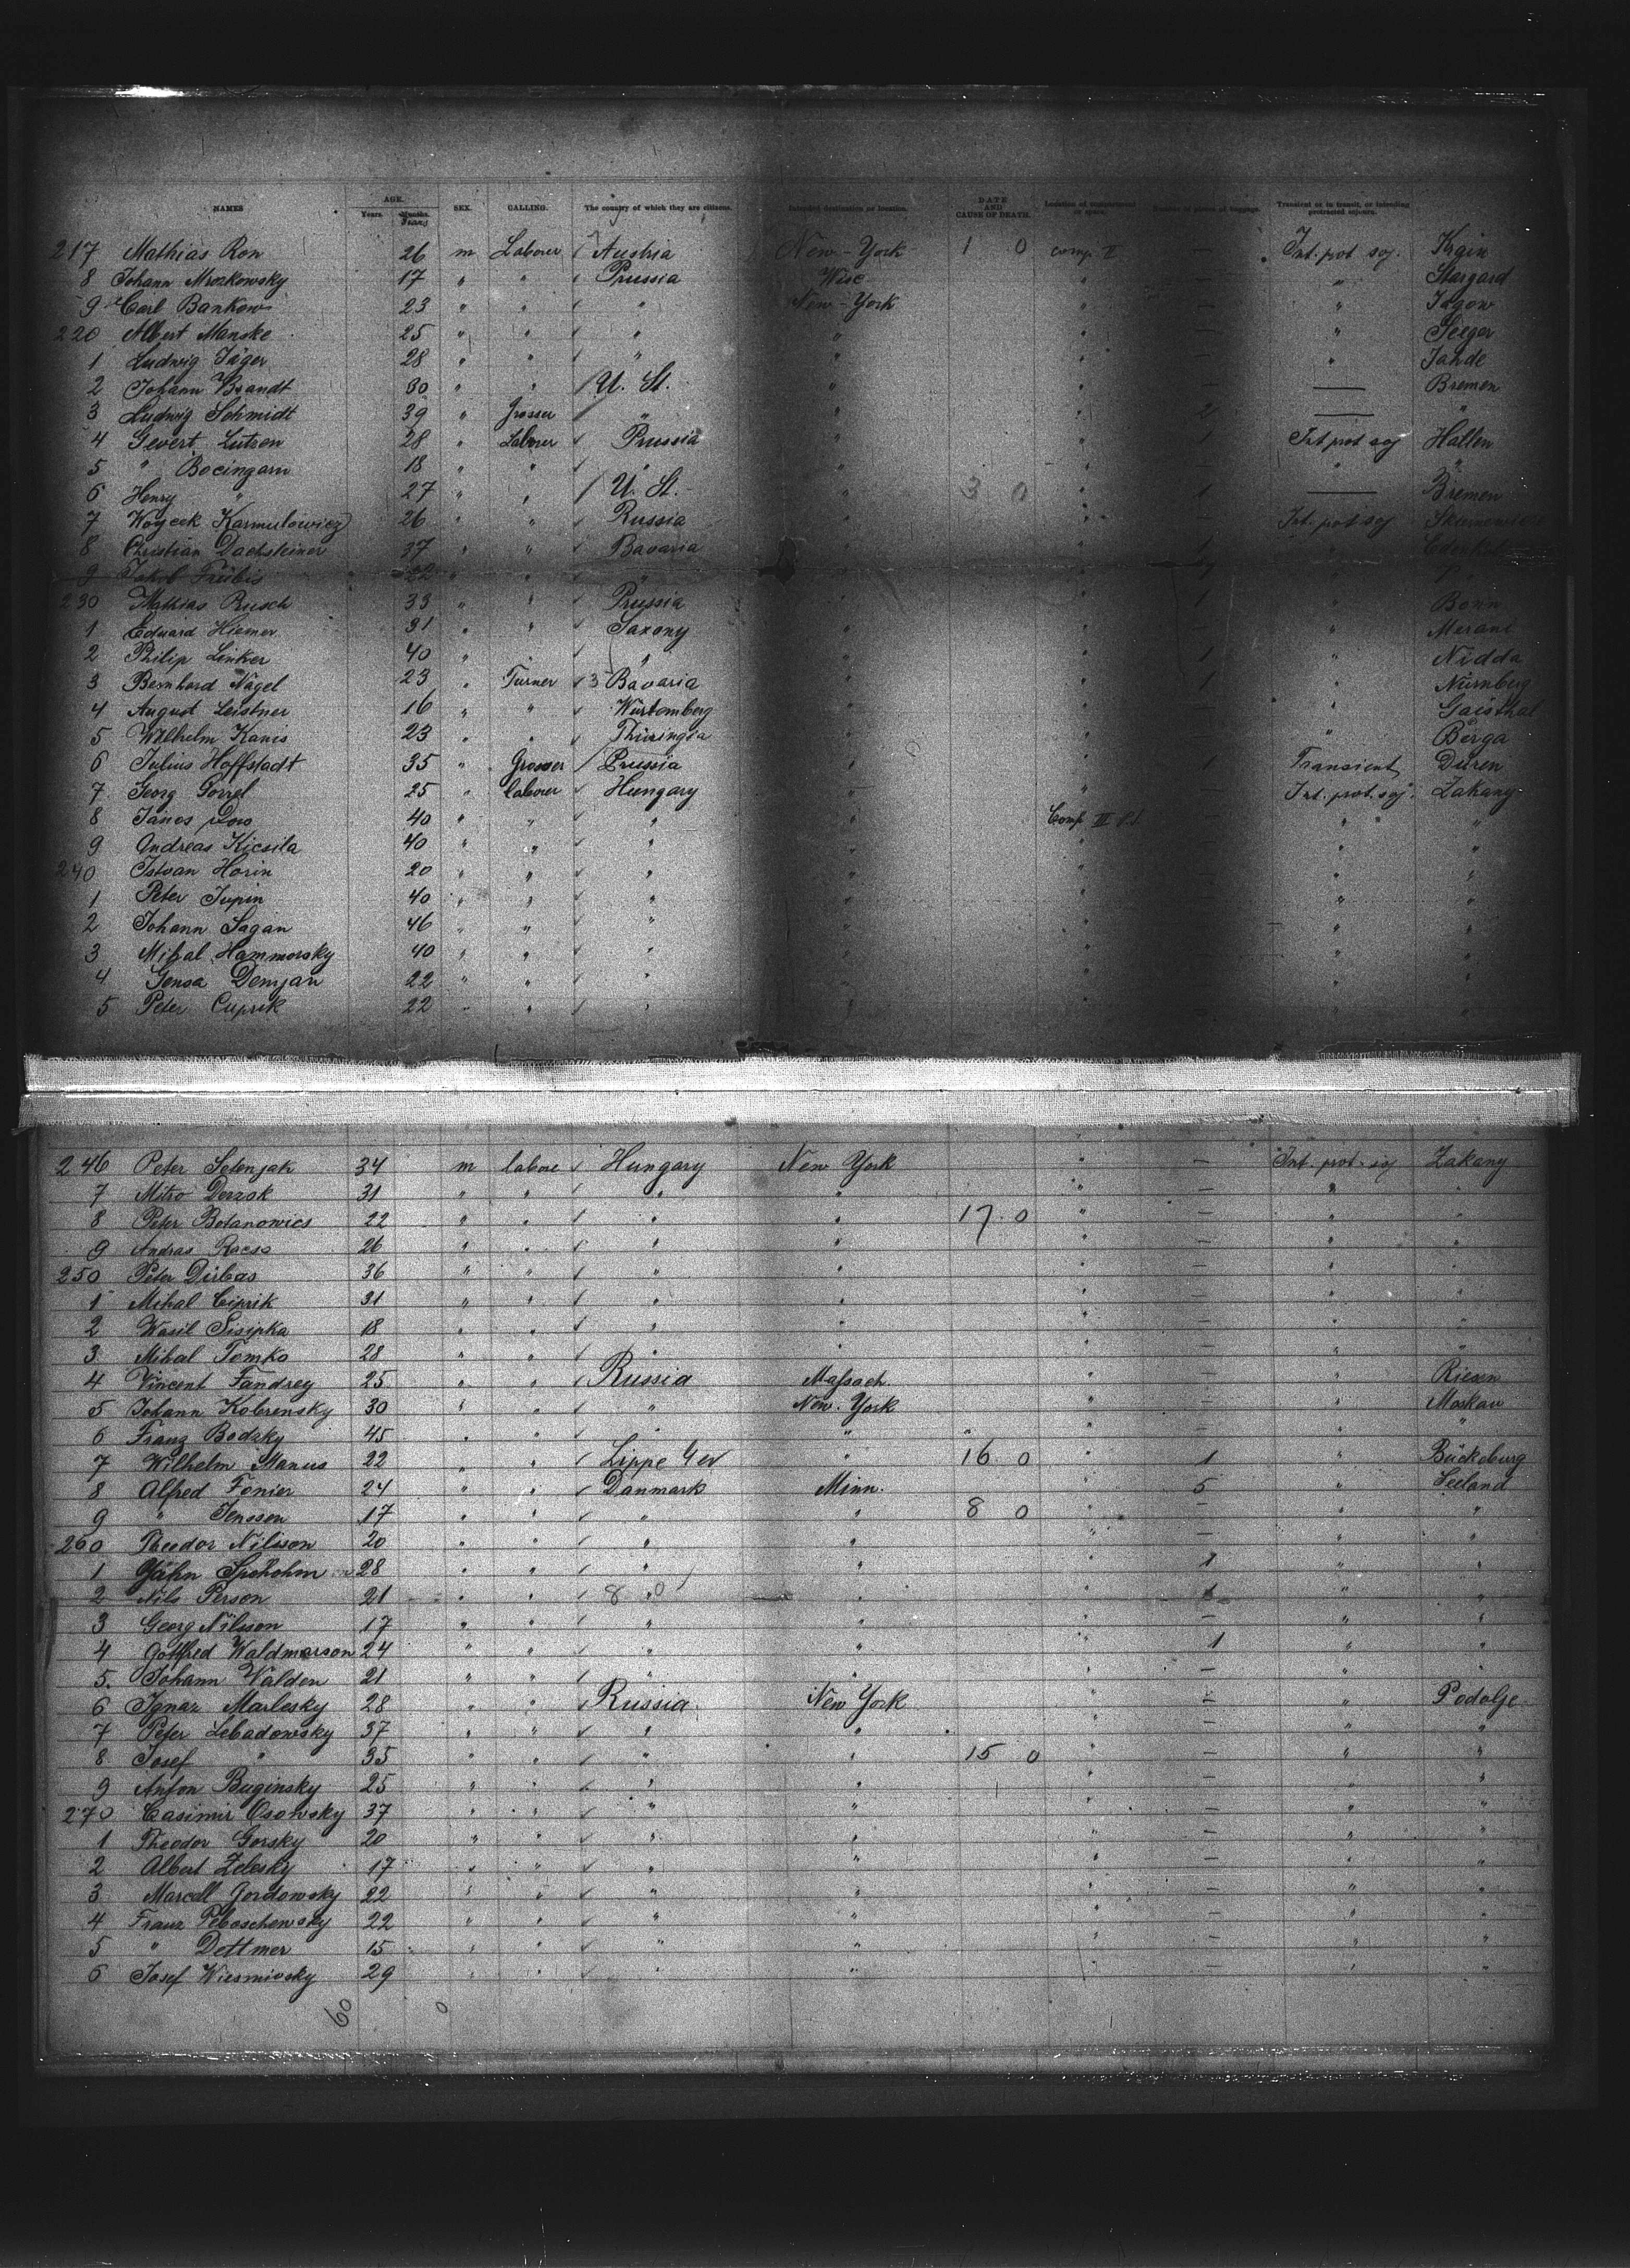 NAMES AGE. Years. Months. Years SEX. CALLING. The country of which they are citizens. Intended destination or location. DATE AND CAUSE OF DEATH. Location of compartment or space. Number of pieces of baggage. Transient or in transit, or intending protracted sojourn.
217 Mathias Ron 26 m Laborer Austria New-York 1 0 comp. II — Int. prot soj.
8 Johann Mrozkowsky 17 " " Prussia Wisc " — " Stargard
9 Carl Bankow 23 " " " New-York " — "
220 Albert Manske 25 " " " " " — " Seeger
1 Ludwig Jäger 28 " " " " " — " Jahde
2 Johann Brandt 30 " " U. St. " " — — Bremen
3 Ludwig Schmidt 39 " Grosser " " " 2 — "
4 Gevert Lutzen 28 " Laborer Prussia " " 1 Int prot soj Hallen
5 " 18 " " " " " — " "
6 Henry " 27 " " U. St. " 3 0 " 1 — Bremen
7 Woycek Karmulowicz 26 " " Russia " " — Int. prot. soj
8 Christian Dachsteiner 37 " " Bavaria " " 1 "
9 Jakob 22 " " " "
230 Mathias Rusch 33 " " Prussia " " 1 " Bonn
1 Eduard Hiemer 31 " " Saxony " " " Merane
2 Philip Linker 40 " " " " " 1 " Nidda
3 Bernhard Nägel 23 " Turner 3 Bavaria " " 1 " Nürnberg
4 August Leistner 16 " " Würtemberg " " " Gaisthal
5 Wilhelm Kanis 23 " " Thüringia " " " Berga
6 Julius Hoffstadt 35 " Grosser Prussia " " 1 Transient Düren
7 Georg Gorrel 25 " laborer Hungary " " Int. prot. soj. Zakany
8 Janos 40 " " " Comp III — " "
9 Andreas Kicsila 40 " " " " " "
240 Istvan Horin 20 " " " " " "
1 Peter Jupin 40 " " " " " "
2 Johann Sagan 46 " " " " " "
3 Mihal Hammorsky 40 " " " " " "
4 Gensa Demjan 22 " " " " " "
5 Peter Cuprik 22 " " " " " "
246 Peter Setenjak 34 m labore Hungary New York " — Int. prot. soj Zakany
7 Mitro Derzak 31 " " " " " — " "
8 Peter Botanowics 22 " " " " 17 0 " — " "
9 Andras Racso 26 " " " " " — " "
250 Peter Dirbas 36 " " " " " — " "
1 Mihal Ciprik 31 " " " " " — " "
2 Wasil Sisipka 18 " " " " " — " "
3 Mihal Tomko 28 " " " " " — " "
4 Vincent Fandrey 25 " " Russia Massach " — " Riesen
5 Johann Kobrensky 30 " " " New York " — " Moskau
6 Franz Bodzky 45 " " " " " " — " "
7 Wilhelm Manus 22 " " Lippe " 16 0 " 1 " Bückeburg
8 Alfred Fonier 24 " " Danmark Minn. " 5 " Seeland
9 " Jenssen 17 " " " " 8 0 " — " "
260 Theodor Nilsson 20 " " " " " — " "
1 28 " " " " " 1 " "
2 Nils Person 21 " " 8 0 " " 1 " "
3 Georg Nilsson 17 " " " " " — " "
4 Gottfred Waldmarson 24 " " " " " 1 " "
5. Johann Walden 21 " " " " " — " "
6 Ignaz Marlesky 28 " " Russia New York " — " Podolje
7 Peter Lebadowsky 37 " " " " " — " "
8 Josef " 35 " " " " 15 0 " — " "
9 Anton Buginsky 25 " " " " " — " "
270 Casimir Osowsky 37 " " " " " — " "
1 Theodor Gorsky 20 " " " " " — " "
2 Albert Zelesky 17 " " " " " — " "
3 Marcell Gordowsky 22 " " " " " — " "
4 Franz Peboschewsky 22 " " " " " — " "
5 " Dettmer 15 " " " " " — " "
6 Josef Wiesmiosky 29 " " " " " — " "
60 0